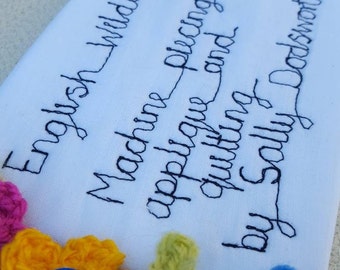 English
Machine piecing
applique and
quilting
by Sally